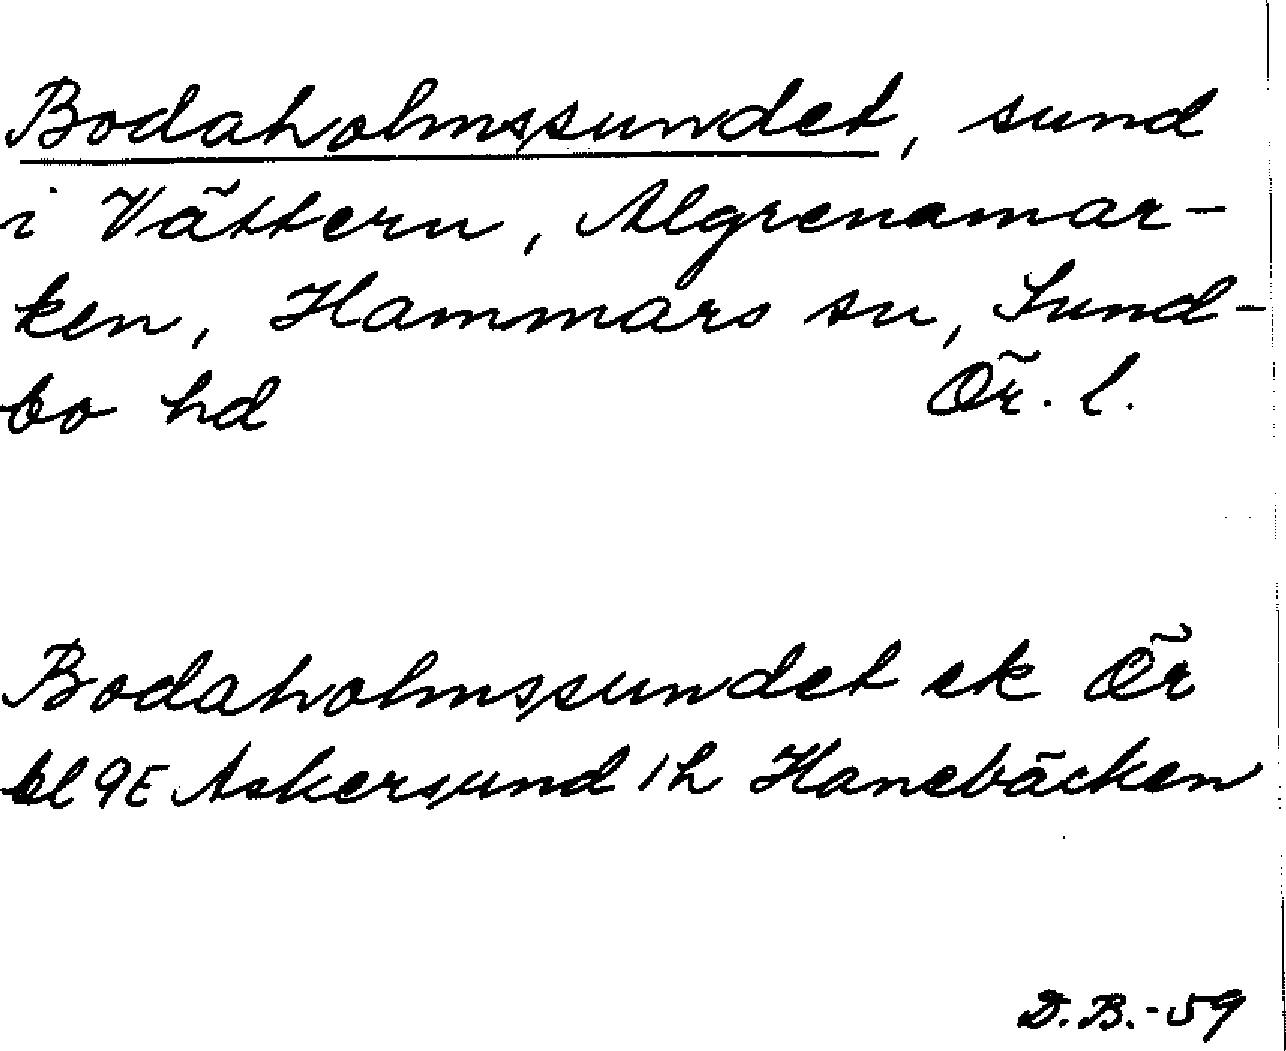 Bodaholmssundet, sund
i Vättern, Algrenamar-
ken, Hammars sn, Sund-
bo hd Ör. l.
Bodaholmssundet ek Ör
bl 9E Askersund 1h Hanebäcken
D.B.-59